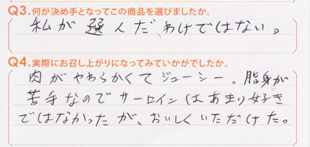 Q3.何が決め手となってこの商品を選びましたか。
私が選んだわけではない。
Q4.実際にお召し上がりになってみていかがでしたか。
肉がやわらかくてジューシー。脂身が
苦手なのでサーロインはあまり好き
ではなかったが、おいしくいただけた。